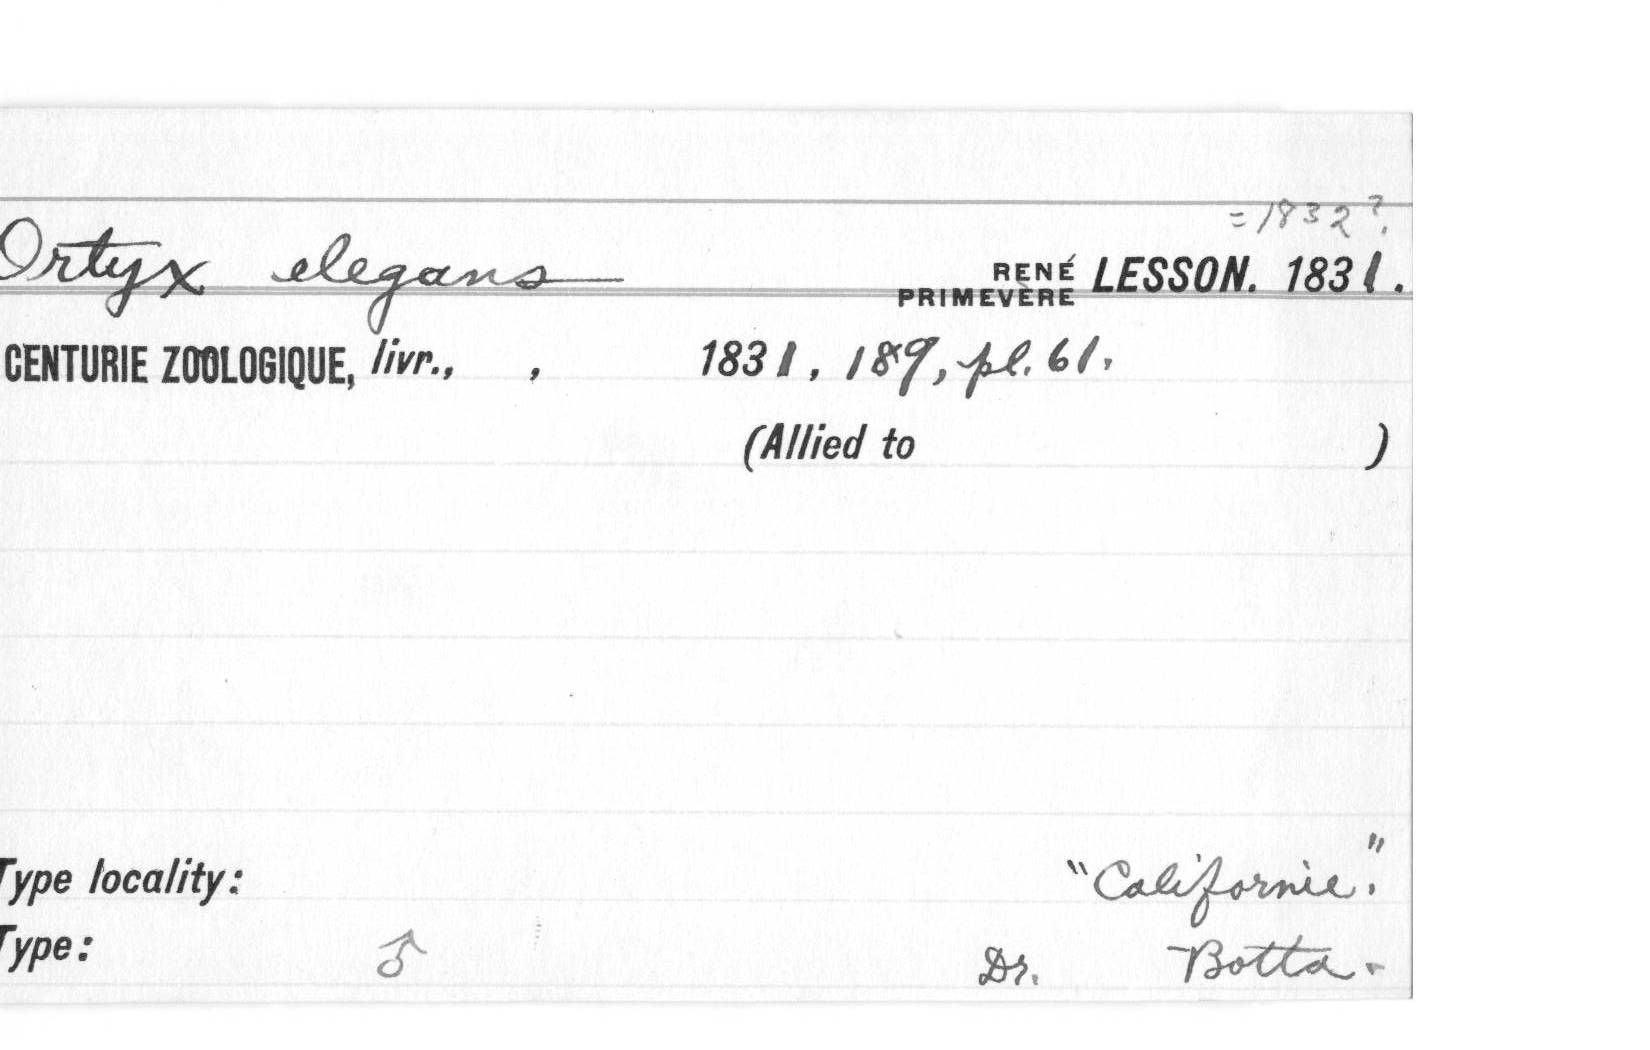 =1832?.
Ortyx elegans RENÉ PRIMEVÈRE LESSON. 1831.
CENTURIE ZOOLOGIQUE, livr., , 1831, 189, pl. 61.
(Allied to )
Type locality: "Californie."
Type: ♂ Dr. Botta.